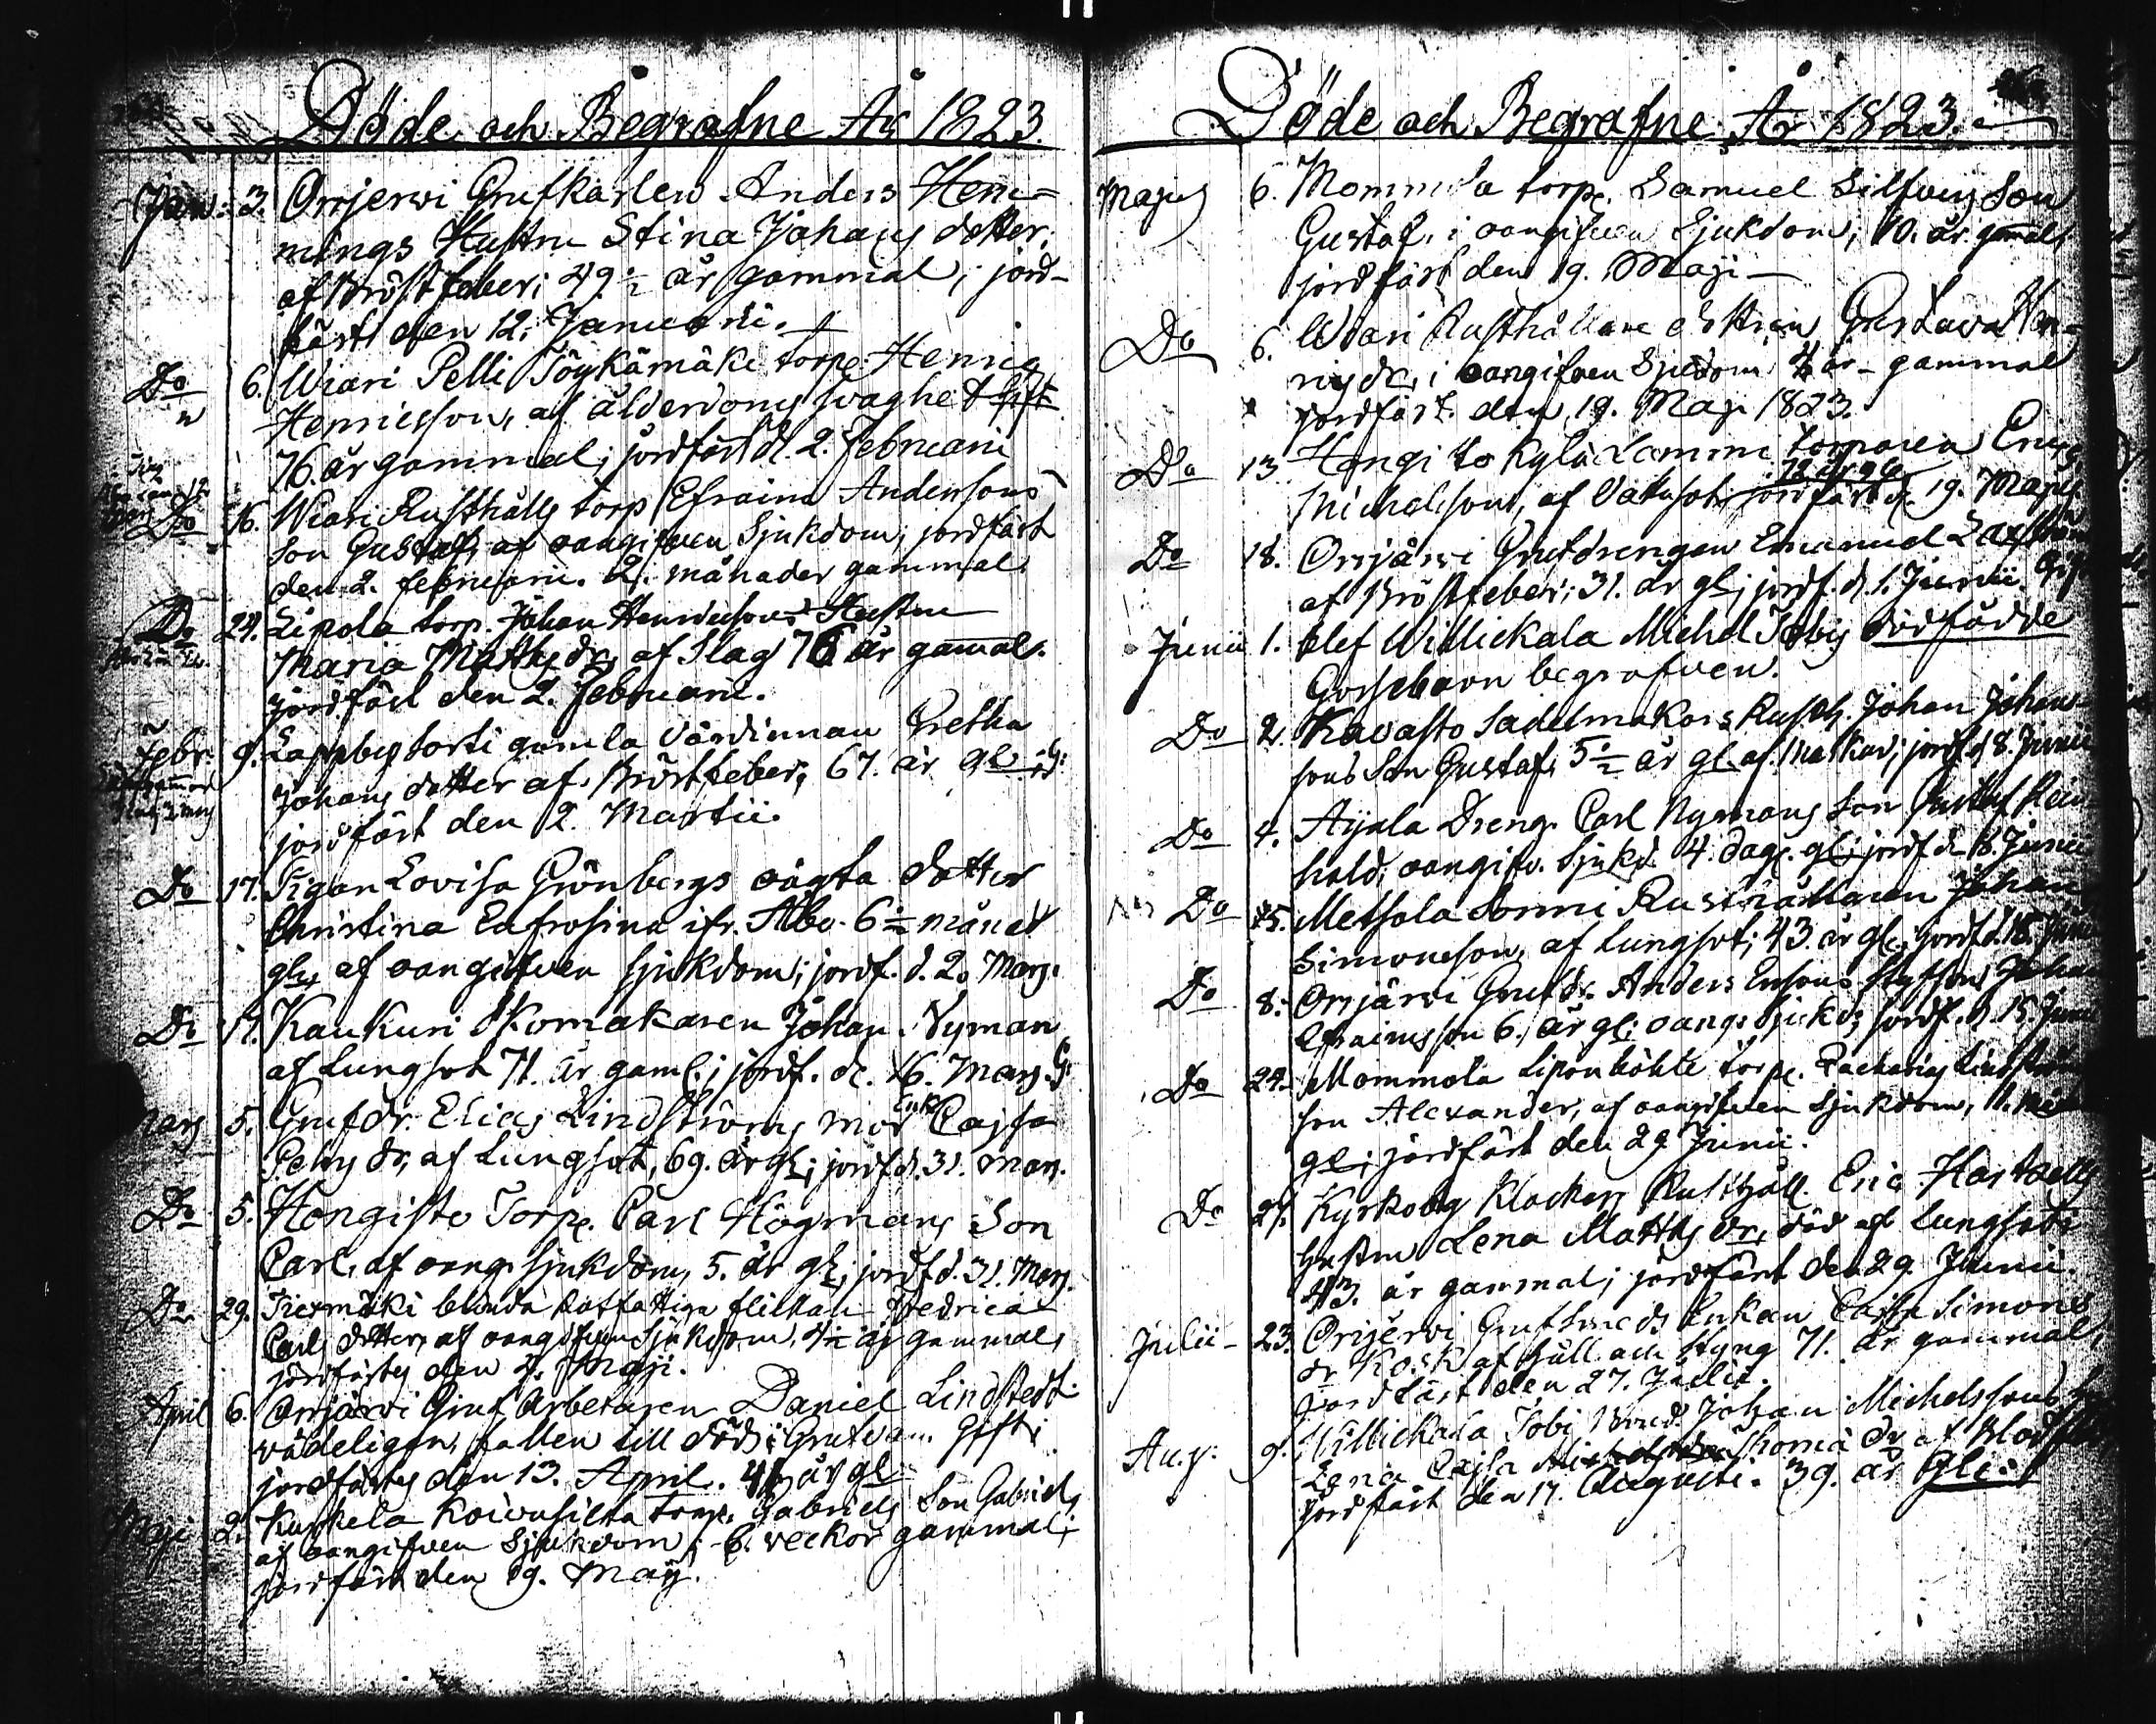 Döde och Begrafne År 1823.
Janu: 3. Orrjerwi Grufkarlen Anders Hen-
nings Hustru Stina Johans dotter.
af Bröstfeber; 49 ½ år gammal; jord-
fäst den 12. Januarii.
Do 6. Wiari Pelli Töykämäki torp. Henric
Henricsson, af ålderdoms svaghet
76. år gammal; jordfäst d. 2. Februarii
Do 16. Wiari Rusthålls torp Efraim Anderssons
Son Gustaf, af oangifven Sjukdom; jordfäst
den 2. februarii. 2. månader gammal.
Do 24. Lipola torp. Johan Henricssons Hustru
Maria Matts dr, af Slag 76 år gamal.
jordfäst den 2. Februarii.
Febr. 9. Lappby torti gamla Värdinnan Gretha
Johans dotter af Bröstfeber; 67. år gl
jordfäst den 2. Martii.
Do 17. Pigan Lovisa Grönbergs oägta dotter
Christina Eufrosina ifr. Åbo. 6 ½ månad
gl, af oangifven sjukdom; jordf. d. 2. Marz.
Do 17. Kaukuri Skomakaren Johan Nyman
af Lungsot 71. år gaml.; jordf. d. 16. Marz.
Marz 5. Grufdr. Elias Lindströms mor Enk. Cajsa
Pehrs dr, af Lungsot, 69. år gl; jordf. d. 31. Marz.
Do 5. Hongisto Torp. Carl Högmans Son
Carl, af oang. sjukdom, 5. år gl; jordf. d. 31. Marz.
Do 29. blinda flickan Fredrica
Carls dotter, af oangifven Sjukdom, år gammal,
jordfästes den 4. Maji.
April 6. Orrjärvi Gruf Arbetaren Daniel Lindstedt
wådeligen, fallen till död i Grufvan. Gift;
jordfästes den 13. April. år gl
Maji 2. Kuskela Koivusilta torp. Gabriels Son Gabriel,
af oangifven Sjukdom; 6. veckor gammal;
jordfäst den 19. Maij.
Döde och Begrafne År 1823.
Majus 6. Mommola torp. Samuel Silfvers Son
Gustaf, i oangifven Sjukdom; 10. år gamal,
jordfäst den 19. Maji
Do 6. Wiari Rusthållare dottren Gustava Hen-
rics dr, i oangifven Sjukdom år gammal
jordfäst den 19. Maji 1823.
Do 13 Hongisto Kylä Lammi torparen Eric
Michelsson, af Vattusot, 72 år gl jordfäst d. 19. Majus
Do 18. Orrjärwi Grufdrengen Emanuel Laxström
af Bröstfeber; 31. år gl; jordf. d. 1. Junii.
Junii 1. blef Willickala Michel Tobis dödfödde
Gossebarn begrafven.
Do 2. Kavasto Sadelmakars Rusth. Johan Johans-
sons Son Gustaf, 5 ½ år gl. af Maskar; jordf. d. 8. Junii
Do 4. Ajala Dreng. Carl Nymans Son Gustaf Rein-
hold, oangifv. Sjukd. 4. dag. gl; jordf. d. Junii
Do 5. Metsola Sonni Rusthållaren Johan
Simonsson, af Lungsot; 43. år gl; jordf. d. 15. Junii
Do 8. Orrjärwi Grufdr. Anders Ersons Styfson Johan
Efraimsson 6. år gl; oang. Sjukd; jordf. d. 15. Junii
Do 24. Mommola torp. Zacharias Lindströms
son Alexander, af oangifven Sjukdom, 11.
gl; jordfäst den 29 Junii.
Do 27. Kyrkoby Klockars Rusthåll. Eric Hartzells
Hustru Lena Matts dr, död af lungsot;
43. år gammal; jordfäst den 29 Junii.
Julii 23. Orijerwi Grufsmeds Enkan Cajsa Simons
dr Kosk af håll och Styng 71. år gammal,
jordfäst den 27. Julii.
Aug. 9. Willickala Tobi Johan Michelssons
Cajsa Thoma dr af
jordfäst den 17. Augusti. 39. år gl: